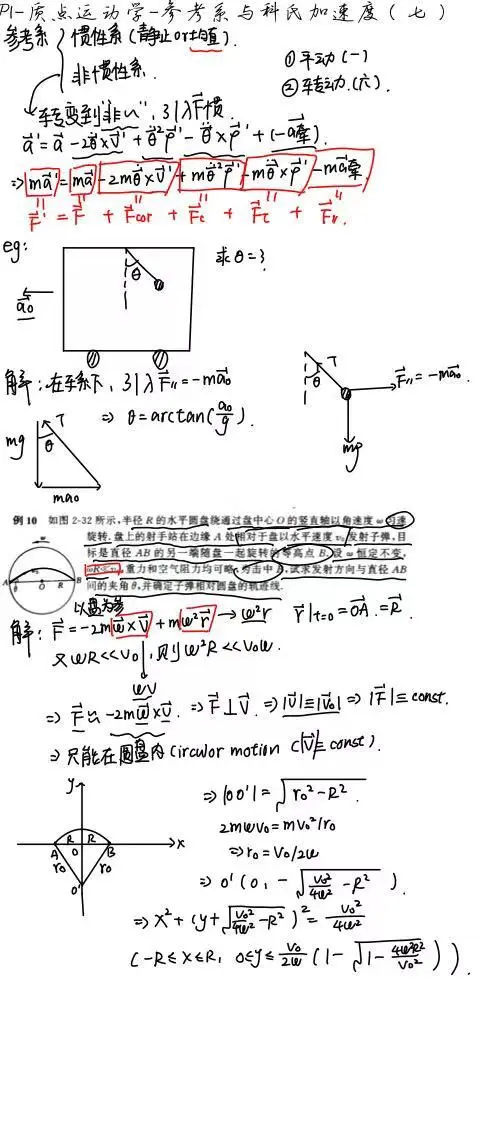 P1-质点运动学-参考系与科氏加速度(七)
参考系 { 惯性系(静止or匀直).
非惯性系.
①平动(一)
②转动.(六).
转变到"非~", 引入F⃗惯
a⃗' = a⃗ - 2θ̇⃗×v⃗' + θ̇²ρ⃗' - θ̈⃗×ρ⃗' + (-a⃗牵)
⇒ ma⃗' = ma⃗ - 2mθ̇⃗×v⃗' + mθ̇²ρ⃗' - mθ̈⃗×ρ⃗' - ma⃗牵
F⃗' = F⃗ + F⃗cor + F⃗c + F⃗τ + F⃗〃.
eg:
θ
求θ=?
a⃗₀
解:在车系下, 引入F⃗〃=-ma⃗₀
T
θ
F⃗〃=-ma⃗₀.
mg
⇒ θ=arctan(a₀/g).
mg θ T
ma₀
例 10 如图 2-32 所示,半径 R 的水平圆盘绕通过盘中心 O 的竖直轴以角速度 ω 匀速
旋转,盘上的射手站在边缘 A 处相对于盘以水平速度 v₀ 发射子弹,目
标是直径 AB 的另一端随盘一起旋转的等高点 B,设 ω 恒定不变,
ωR≪v₀,重力和空气阻力均可略,为击中 B,试求发射方向与直径 AB
间的夹角 θ,并确定子弹相对圆盘的轨迹线.
ω
A θ O R B
以盘为参
解: F⃗=-2mω⃗×v⃗ + mω²r⃗ → ω²r r⃗|t=0 = OA⃗ = R⃗.
又ωR<<v₀, 则ω²R<<v₀ω.
ωv
⇒ F⃗≈-2mω⃗×v⃗. ⇒ F⃗⊥v⃗. ⇒|v⃗|≡|v⃗₀| ⇒ |F⃗|≡const.
⇒只能在圆盘内circular motion (|v⃗|≡const).
y
R R
A O B x
r₀ r₀
O'
⇒ |OO'|=√(r₀²-R²).
2mωv₀=mv₀²/r₀
⇒r₀=v₀/2ω
⇒ O'(0, -√(v₀²/4ω²-R²)).
⇒ x²+(y+√(v₀²/4ω²-R²))²=v₀²/4ω²
(-R≤x≤R, 0≤y≤v₀/2ω(1-√(1-4ω²R²/v₀²))).